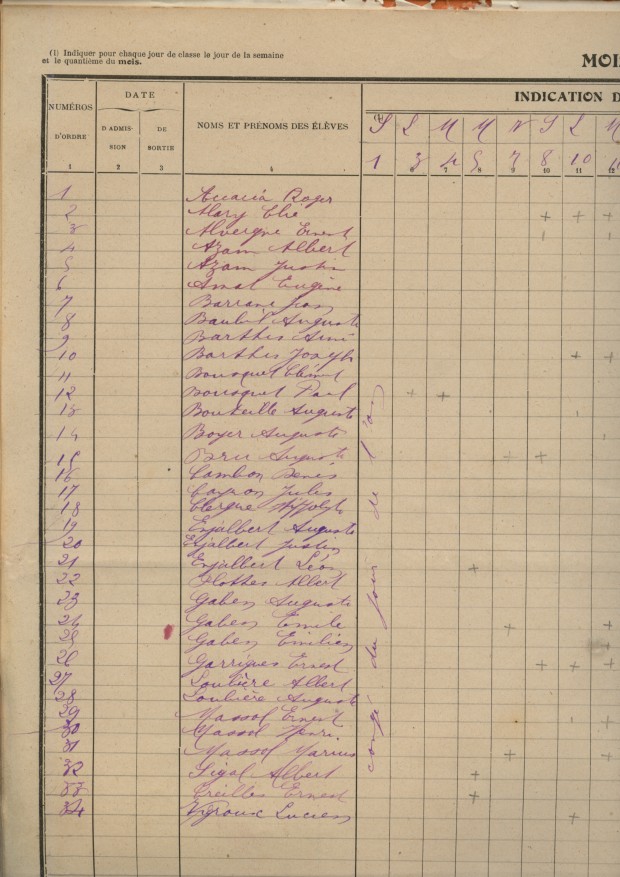 (1) Indiquer pour chaque jour de classe le jour de la semaine
et le quantième du mois.
MOI
NUMÉROS
D'ORDRE
1
DATE
D'ADMIS-
SION
2
DE
SORTIE
3
NOMS ET PRÉNOMS DES ÉLÈVES
4
INDICATION D
(1) S L M M V S L M
1 3 4 5 7 8 10 11
6 7 8 9 10 11 12
1 Accarià Roger
2 Alary Elie
3 Alvergne Ernest
4 Azam Albert
5 Azam Justin
6 Amat Eugène
7 Barrane Jean
8 Baubil Auguste
9 Barthes Aimé
10 Barthes Joseph
11 Bousquet Clément
12 Bousquet Paul
13 Bouteille Auguste
14 Boyer Auguste
15 Bru Auguste
16 Cambon Denis
17 Cayron Jules
18 Clergue Hippolyte
19 Enjalbert Auguste
20 Enjalbert Justin
21 Enjalbert Léon
22 Flottes Albert
23 Gaben Auguste
24 Gaben Emile
25 Gaben Emilien
26 Garrigues Ernest
27 Loubière Albert
28 Loubière Auguste
29 Massol Ernest
30 Massol Henri
31 Massol Marius
32 Sigal Albert
33 Treilles Ernest
34 Vyroux Lucien
congé du jour de l'an